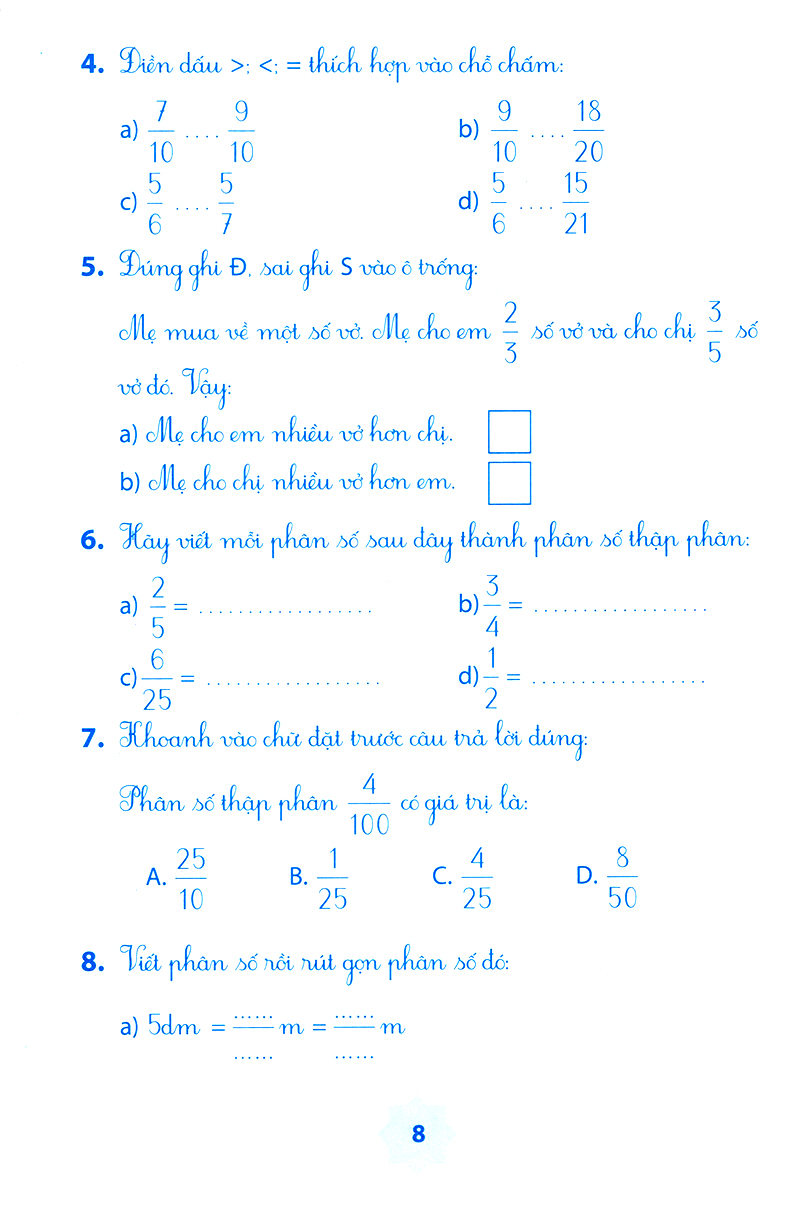 4. Điền dấu >; <; = thích hợp vào chỗ chấm:
a) 7/10 .... 9/10 b) 9/10 .... 18/20
c) 5/6 .... 5/7 d) 5/6 .... 15/21
5. Đúng ghi Đ, sai ghi S vào ô trống:
Mẹ mua về một số vở. Mẹ cho em 2/3 số vở và cho chị 3/5 số
vở đó. Vậy:
a) Mẹ cho em nhiều vở hơn chị.
b) Mẹ cho chị nhiều vở hơn em.
6. Hãy viết mỗi phân số sau đây thành phân số thập phân:
a) 2/5 = .................. b) 3/4 = ..................
c) 6/25 = .................. d) 1/2 = ..................
7. Khoanh vào chữ đặt trước câu trả lời đúng:
Phân số thập phân 4/100 có giá trị là:
A. 25/10 B. 1/25 C. 4/25 D. 8/50
8. Viết phân số rồi rút gọn phân số đó:
a) 5dm = ....../...... m = ....../...... m
8